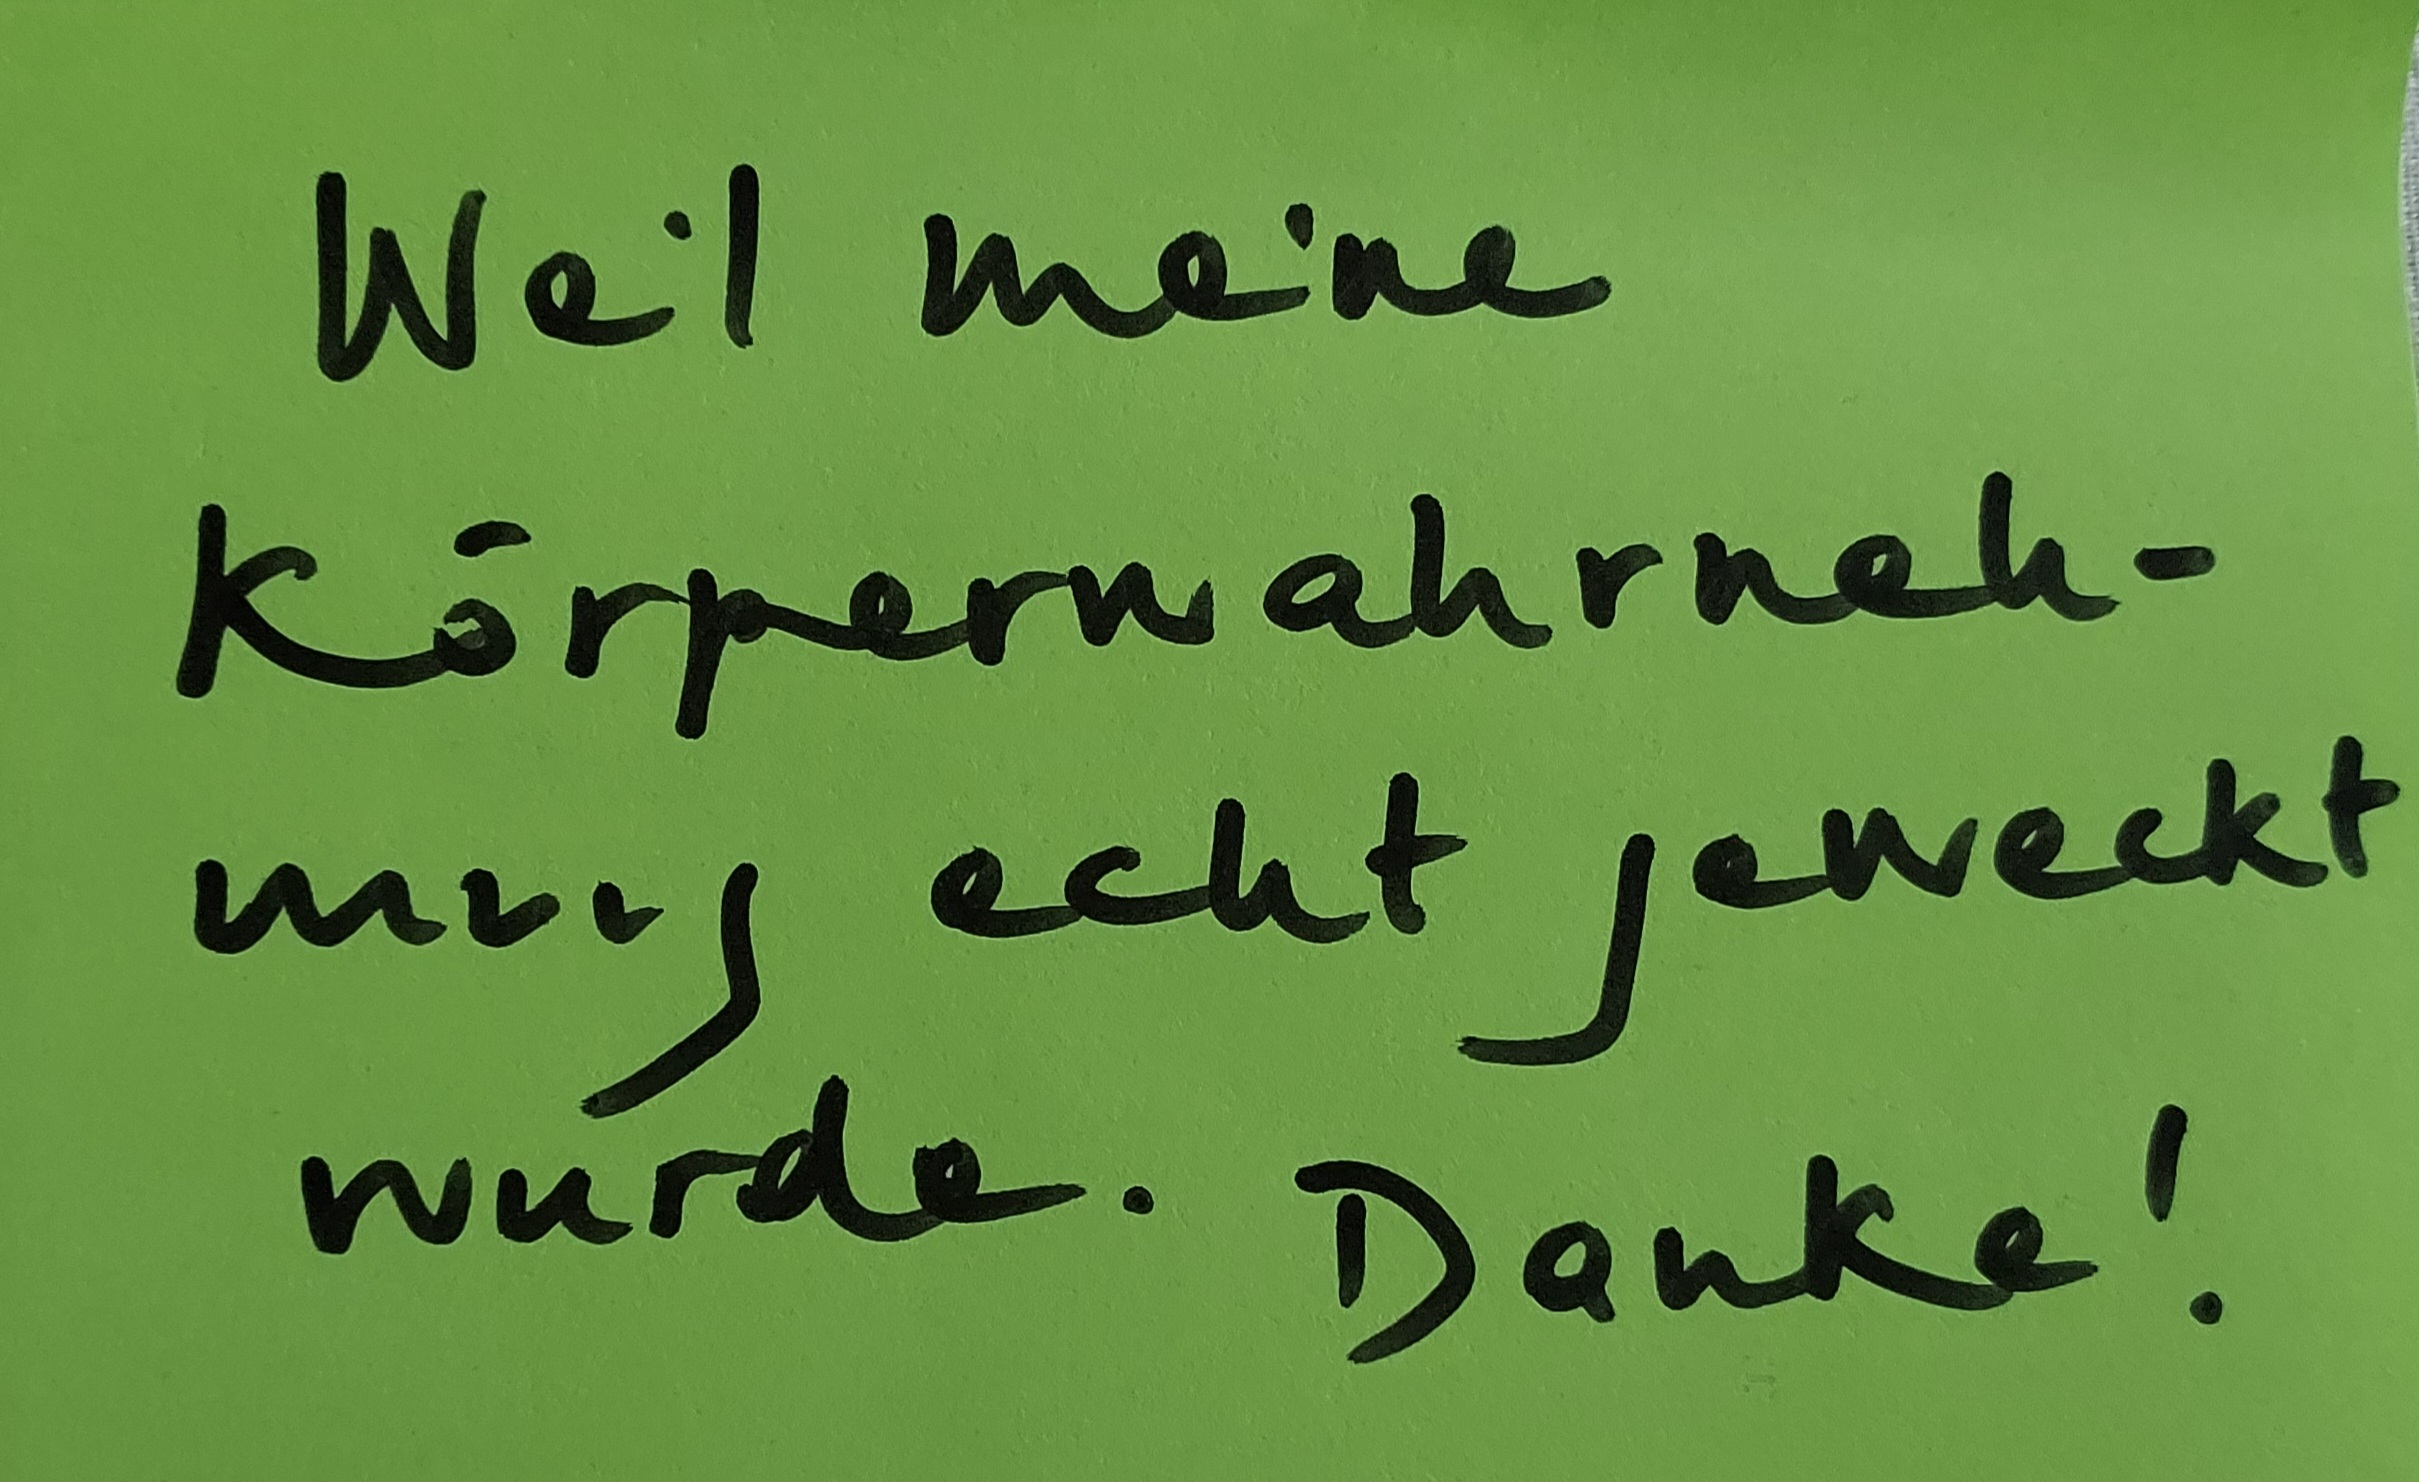 Weil meine
Körperwahrneh-
mung echt geweckt
wurde. Danke!